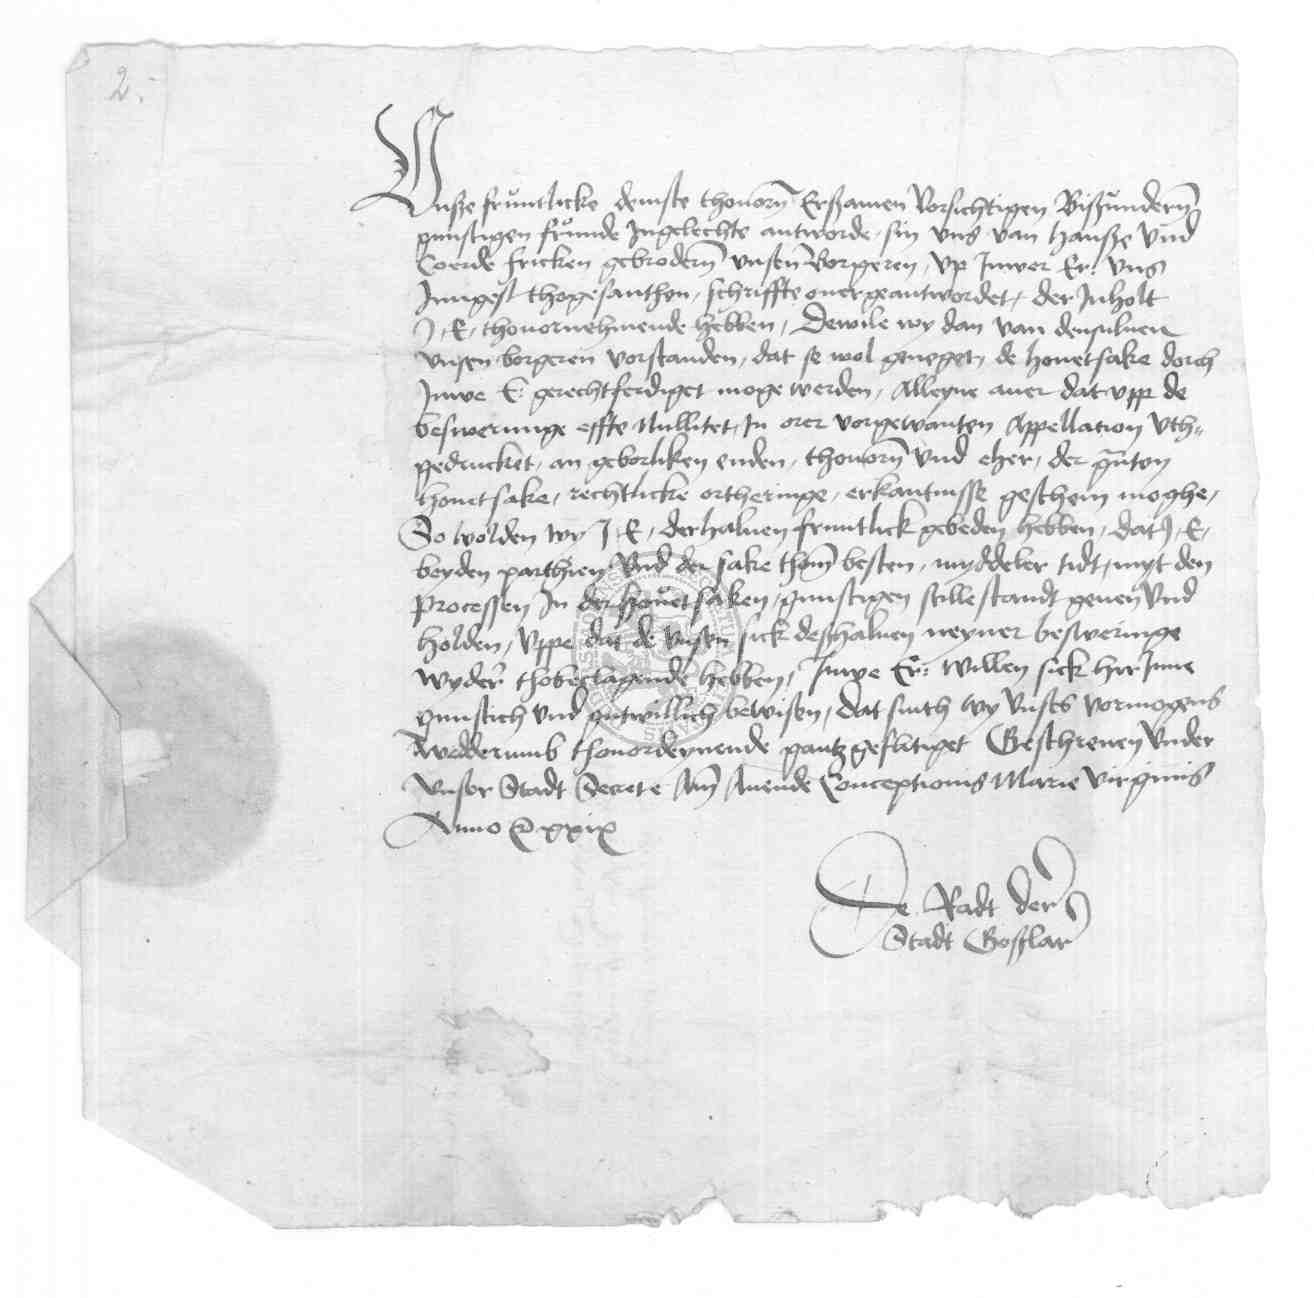 2.
Unsze fruntlicke denste thouorn Erszamen Vorsichtigen Biszundern
gunstigen frunde Ingelechte antworde, sin vns van Hansze vnd
Coerde fricken gebrodern vnsen Borgeren, vp Juwer Er. vns
Jungest thogesanthen, schriffte ouergeantwordet, der Inholt
J. E. thouornehmende hebben, Dewile wy dan van densuluen
vnsen borgeren vorstanden, dat se wol geneget, de houetsake dorch
Juwe E. gerechtferdiget moge werden, Alleyne auer dat vpp de
beswerunge effte Nullitet, In orer vorgewanten Appellation vth-
gedrucket, an geborliken enden, thouorn vnd eher, der gnten
houetsake, rechtlicke ortheringe, erkantnisse geschein moghe,
So wolden wy J. E. derhaluen fruntlick gebeden hebben, dat J. E.
beyden parthien vnd der sake thom besten, myddeler tidt, myt den
Processen In der houetsaken, gunstigen stillestandt geuen vnd
holden, vppe dat de vnsen sick deszhaluen neyner besweringe
wyder thobeclagende hebben, Juwe Er. willen sick hir Inne
gunstich vnd gutwillich bewisen, dat sinth wy vnsers vormogens
wedderumb thouordeynende gantz geflitiget Geschreuen vnder
vnser Stadt Secrete Am Auende Conceptionis Marie virginis
Anno xxix
De Radt der
Stadt Goszlar